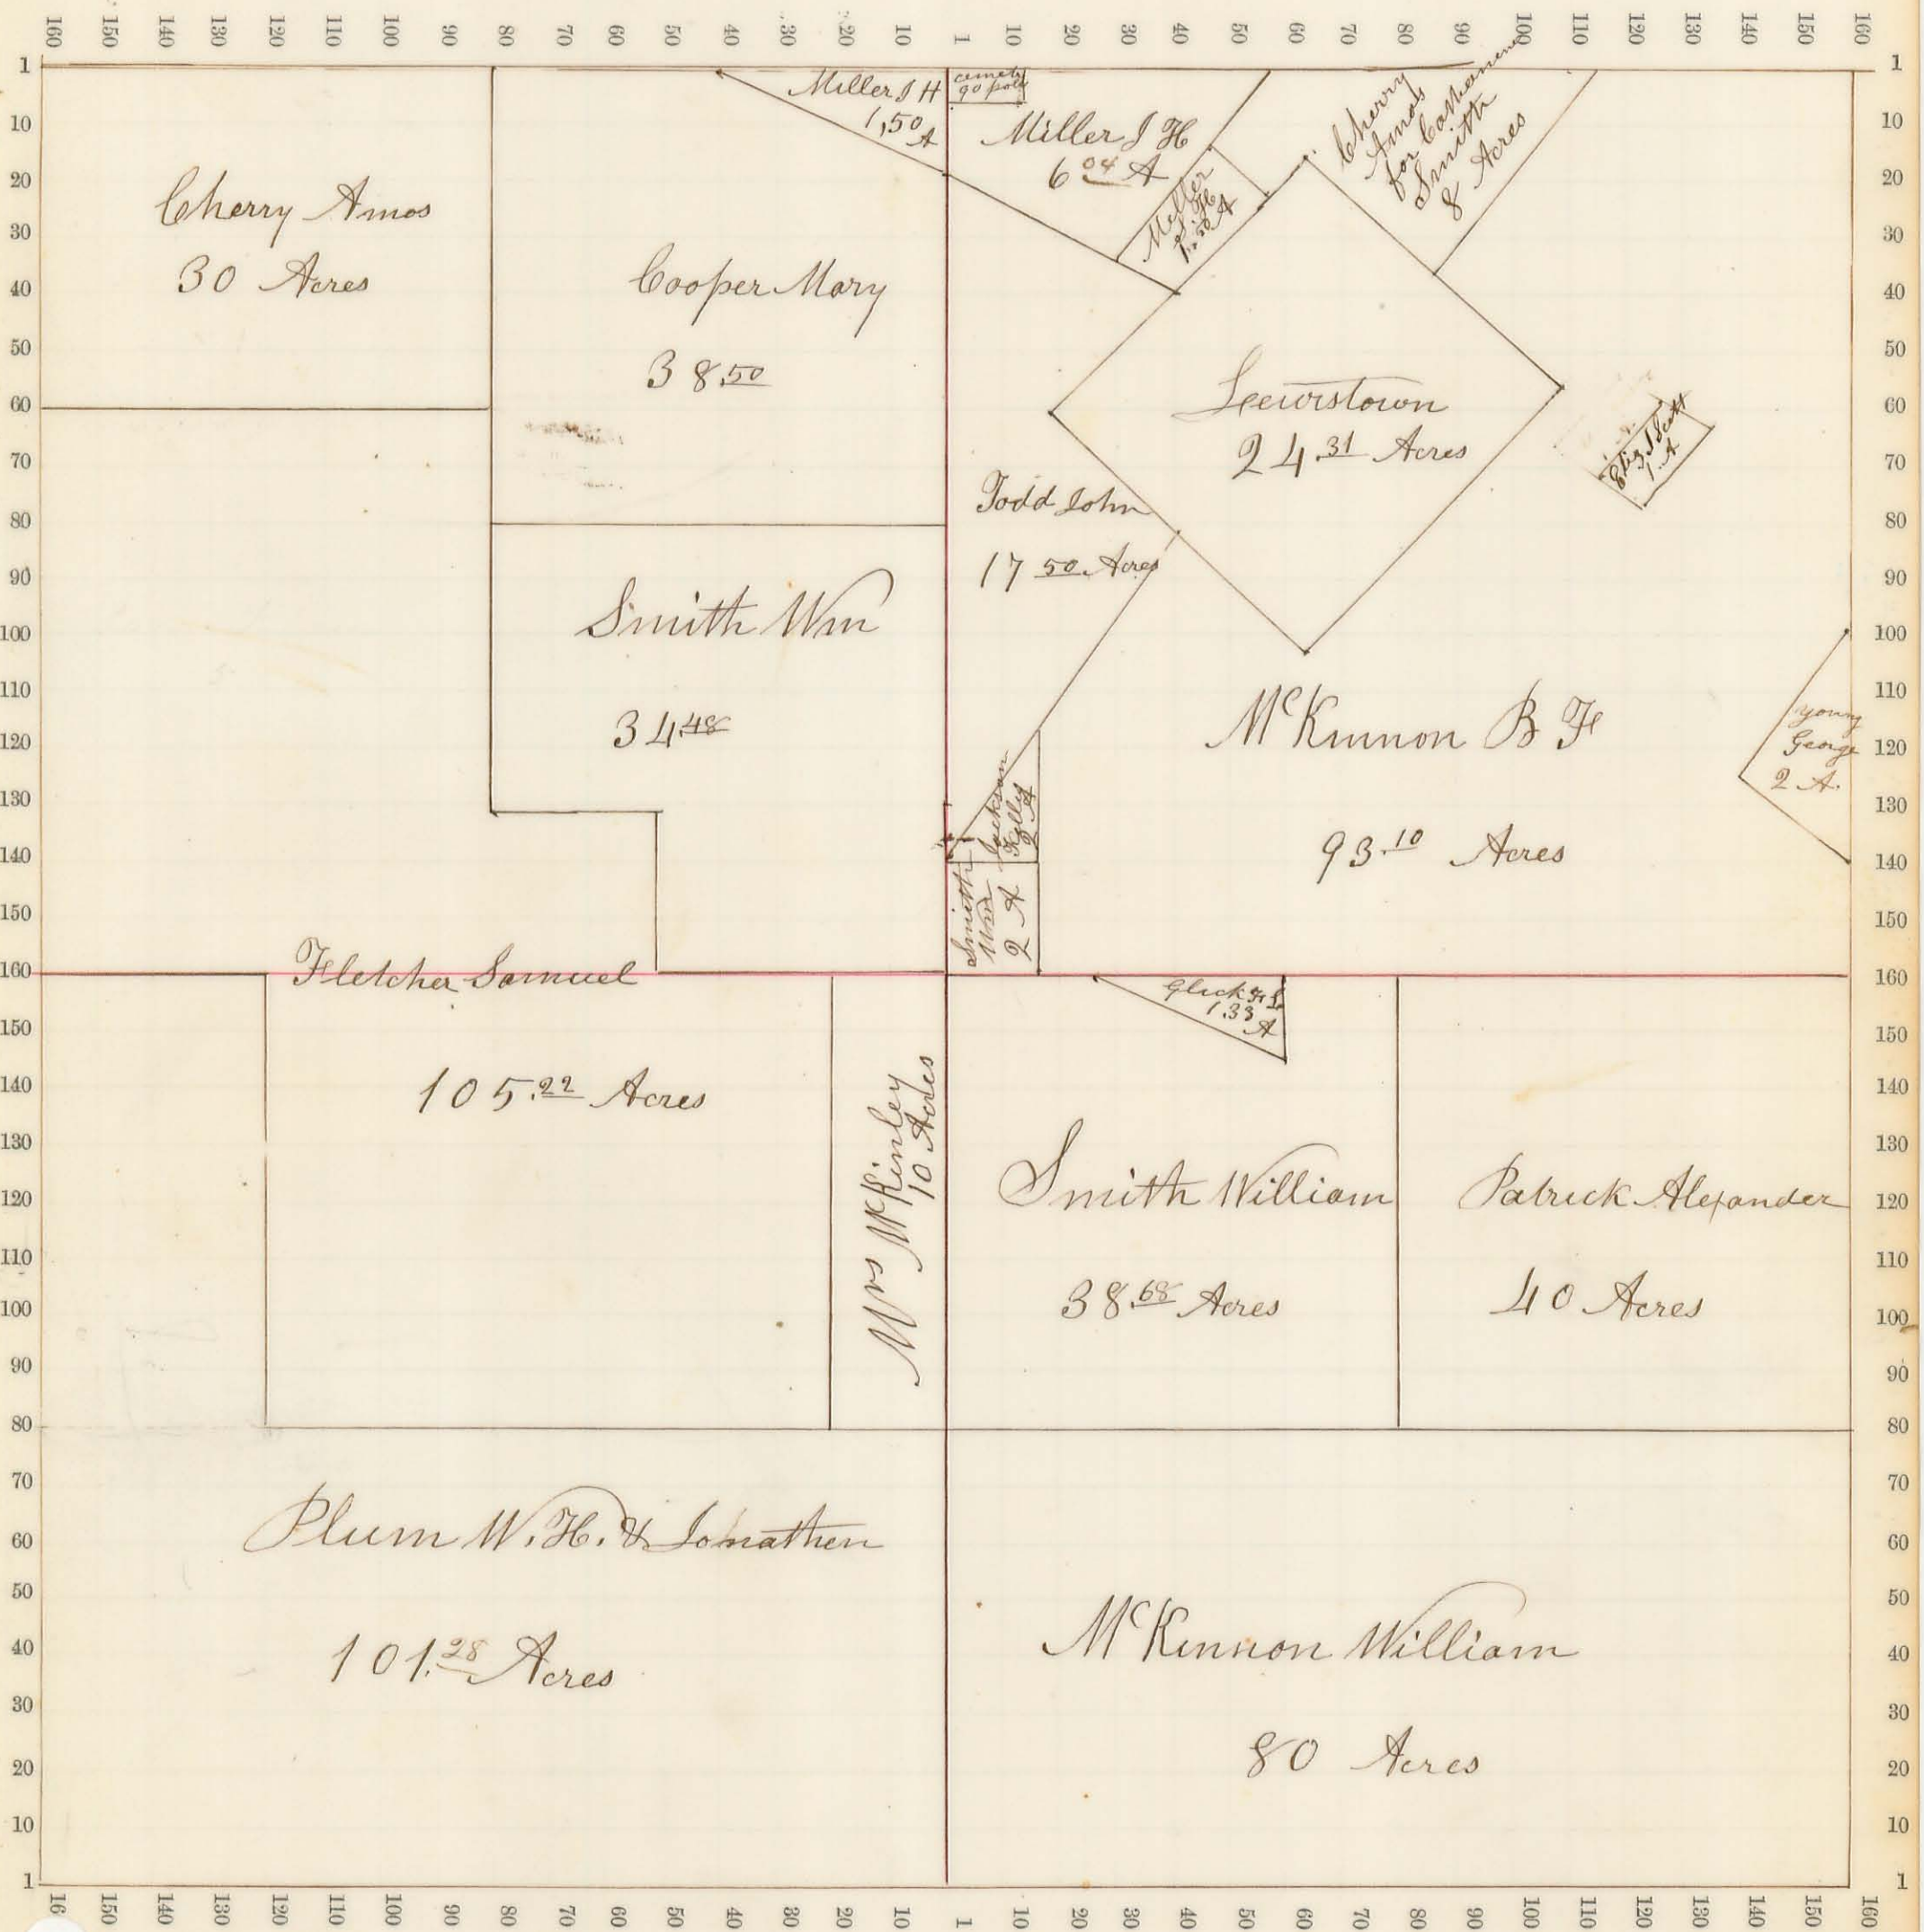 160 150 140 130 120 110 100 90 80 70 60 50 40 30 20 10 1 10 20 30 40 50 60 70 80 90 100 110 120 130 140 150 160
1
10
20
30
40
50
60
70
80
90
100
110
120
130
140
150
160
150
140
130
120
110
100
90
80
70
60
50
40
30
20
10
1
Cherry Amos
30 Acres
Miller J H
1,50
A
Cooper Mary
38.50
Smith Wm
34.48
90 pole
Miller J H
6 04 A
Miller
J. H
1.50 A
Cherry
Amos
for Catharine
Smith
8 Acres
Lewistown
24.31 Acres
Eliz J Scott
1 A
Todd John
17 50 Acres
McKinnon B F
93.10 Acres
Young
George
2 A.
Jackson
Kelley
2 A
Smith
Wm
2 A
Fletcher Samuel
105.22 Acres
Mrs McKinley
10 Acres
Glick
1.33
A
Smith William
38.68 Acres
Patrick Alexander
40 Acres
Plum W. H. & Jonathen
101.28 Acres
McKinnon William
80 Acres
1
10
20
30
40
50
60
70
80
90
100
110
120
130
140
150
160
150
140
130
120
110
100
90
80
70
60
50
40
30
20
10
1
16 150 140 130 120 110 100 90 80 70 60 50 40 30 20 10 1 10 20 30 40 50 60 70 80 90 100 110 120 130 140 150 160